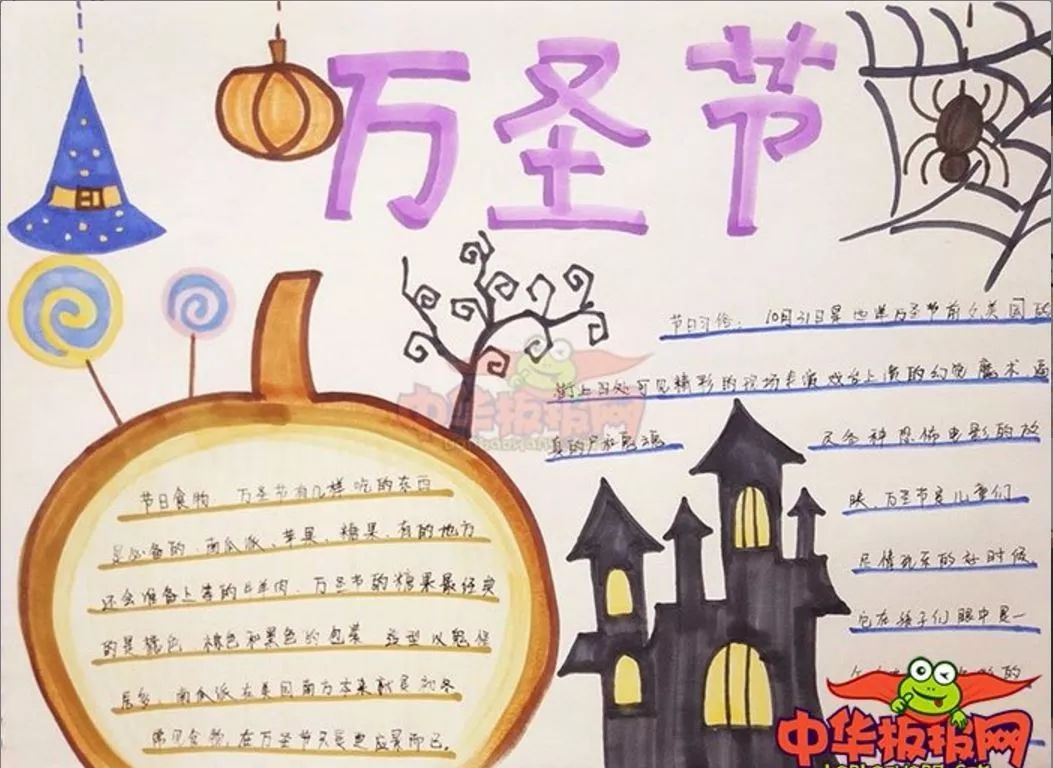 万圣节
节日习俗：10月31日是西洋万圣节前夕美国的
街上四处可见精彩的现场表演戏台上演的幻觉魔术逼
真的尸体鬼魂
及各种恐怖电影的放
映，万圣节是儿童们
尽情玩乐的好时候
它在孩子们眼中是一
的
节日食物 万圣节有几样吃的东西
是必备的，南瓜派、苹果、糖果，有的地方
还会准备上等的牛羊肉，万圣节的糖果最经典
的是橙色，棕色和黑色的包装 造型以鬼怪
居多，南瓜派在美国南方本来就是初冬
常见食物，在万圣节只是更应景而已。
中华板报网
中华板报网